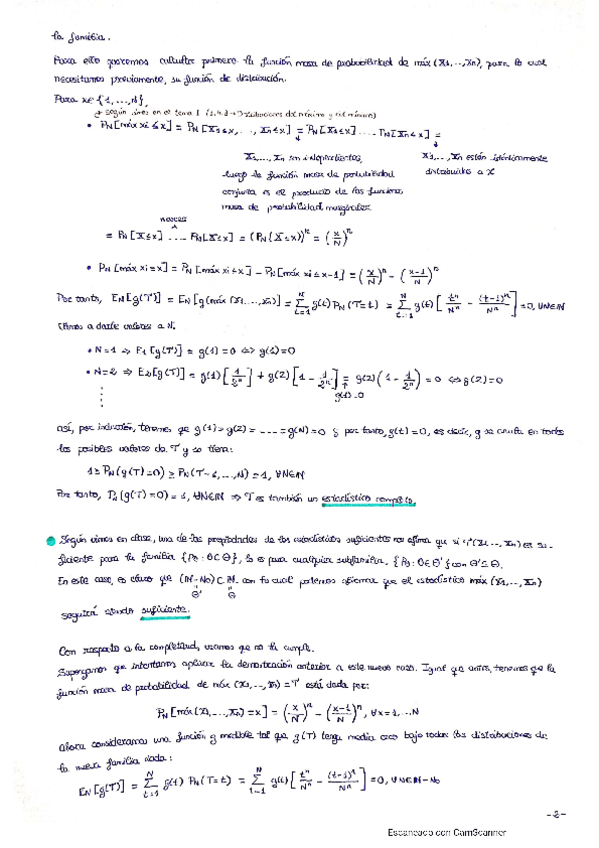 la familia.
Para ello tenemos calcular primero la función masa de probabilidad de máx(X₁,..,Xn), para lo cual
necesitamos previamente, su función de distribución.
Para x∈{1,...,N},
según vimos en el tema 1 (Distribuciones del máximo y del mínimo)
• P_N[máx xi ≤ x] = P_N[X₁≤x, ..., Xn≤x] = P_N[X₁≤x] .... P_N[Xn≤x] =
X₁,..., Xn son independientes, X₁,..., Xn están idénticamente
luego la función masa de probabilidad distribuidas a X
conjunta es el producto de las funciones
masa de probabilidad marginales.
n veces
= P_N[X≤x] .... P_N[X≤x] = (P_N(X≤x))ⁿ = (x/N)ⁿ
• P_N[máx xi=x] = P_N[máx xi≤x] - P_N[máx xi≤x-1] = (x/N)ⁿ - (x-1/N)ⁿ
Por tanto, E_N[g(T)] = E_N[g(máx(X₁,...,Xn))] = Σ_{t=1}^{N} g(t) P_N(T=t) = Σ_{t=1}^{N} g(t)[tⁿ/Nⁿ - (t-1)ⁿ/Nⁿ] = 0, ∀N∈ℕ
Vamos a darle valores a N.
• N=1 ⇒ E₁[g(T)] = g(1) = 0 ⇔ g(1)=0
• N=2 ⇒ E₂[g(T)] = g(1)[1/2ⁿ] + g(2)[1 - 1/2ⁿ] = g(2)(1 - 1/2ⁿ) = 0 ⇔ g(2)=0
g(1)=0
así, por inducción, tenemos que g(1)=g(2)= .... =g(N)=0 y por tanto, g(t)=0, es decir, g se anula en todos
los posibles valores de T y se tiene:
1 ≥ P_N(g(T)=0) ≥ P_N(T=1,...,N) = 1, ∀N∈ℕ
Por tanto, P_N(g(T)=0) = 1, ∀N∈ℕ ⇒ T es también un estadístico completo.
Según vimos en clase, una de las propiedades de los estadísticos suficientes nos afirma que si T(X₁,..., Xn) es su-
ficiente para la familia {Pθ : θ∈Θ}, lo es para cualquier subfamilia, {Pθ : θ∈Θ'} con Θ'⊆Θ.
En este caso, es claro que (ℕ-N₀) ⊂ ℕ, con lo cual podemos afirmar que el estadístico máx(X₁,..., Xn)
Θ' Θ
seguirá siendo suficiente.
Con respecto a la completitud, veamos que no la cumple.
Supongamos que intentamos aplicar la demostración anterior a este nuevo caso. Igual que antes, tenemos que la
función masa de probabilidad de máx(X₁,..., Xn) = T está dada por:
P_N[máx(X₁,..., Xn) = x] = (x/N)ⁿ - (x-1/N)ⁿ, ∀x=1,...N
Ahora consideramos una función g medible tal que g(T) tenga media cero bajo todas las distribuciones de
la nueva familia dada:
E_N[g(T)] = Σ_{t=1}^{N} g(t) P_N(T=t) = Σ_{t=1}^{N} g(t)[tⁿ/Nⁿ - (t-1)ⁿ/Nⁿ] = 0, ∀N∈ℕ-N₀
-2-
Escaneado con CamScanner